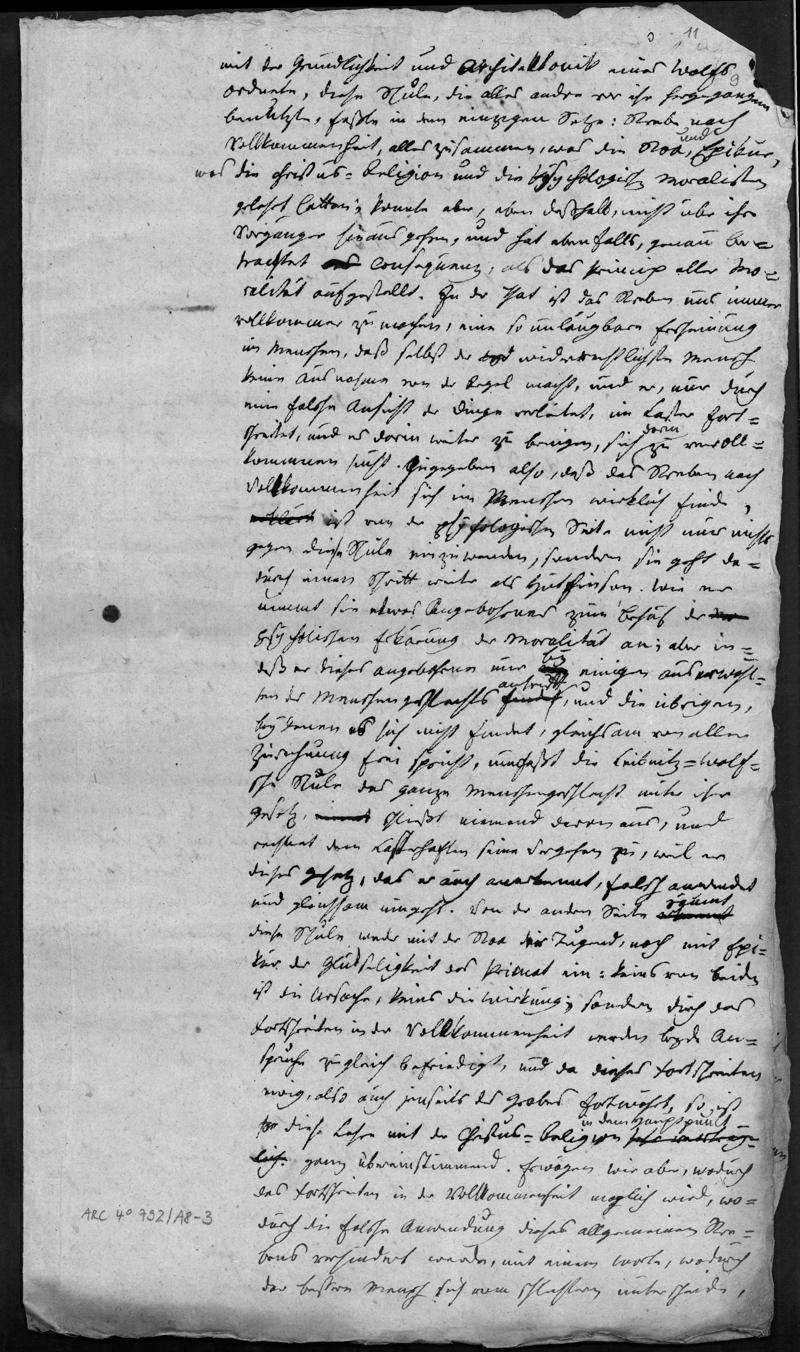 11
9
mit der Gründlichkeit und Architektonik eines Wolfs
ordnete, diese Schule, die alles andre vor ihr hergegangene
benützte, faßte in dem einzigen Satze: Strebe nach
Vollkommenheit, alles zusammen, was die Stoa, und Epikur,
was die Christus-Religion und die psychologischen Moralisten
gelehrt hatten; konnte aber, eben deßhalb, nicht über ihre
Vorgänger hinaus gehen, und hat ebenfalls, genau be=
trachtet Consequenz, als das Princip aller Mo=
ralität aufgestellt. In der That ist das Streben uns immer
vollkommner zu machen, eine so unläugbare Erscheinung
im Menschen, daß selbst der widerrechtlichste Mensch
keine Ausnahme von der Regel macht, und er, nur durch
eine falsche Ansicht der Dinge verleitet, im Laster fort=
schreitet, und es darin weiter zu bringen, sich darin zu vervoll=
kommnen sucht. Zugegeben also, daß das Streben nach
Vollkommenheit sich im Menschen wirklich finde,
ist von der psychologischen Seite nicht nur nichts
gegen diese Schule einzuwenden, sondern sie geht da=
durch einen Schritt weiter als Hutchinson. Wie er
nimmt sie etwas Angebohrnes zum Behuf der
psycholischen Erklärung der Moralität an; aber in=
deß er dieses angebohrne nur bey einigen auserwähl=
ten des Menschengeschlechts antrifft, und die übrigen,
bey denen es sich nicht findet, gleichsam von aller
Zurechnung frei spricht, umfaßt die Leibnitz-Wolf=
sche Schule das ganze Menschengeschlecht unter ihr
Gesetz, schließt niemand davon aus, und
rechnet dem Lasterhaften seine Vergehen zu, weil er
dieses Gesetz, das er auch anerkennt, falsch anwendet
und gleichsam umgeht. Von der andern Seite räumt
diese Schule weder mit der Stoa der Tugend, noch mit Epi=
kur der Glückseligkeit das Primat ein: keins von beiden
ist die Ursache, keins die Wirkung; sondern durch das
Fortschreiten in der Vollkommenheit werden beyde An=
sprüche zugleich befriedigt, und da dieses Fortschreiten
ewig, also auch jenseits des Grabes fortwährt, so ist
diese Lehre mit der Christus-Religion in dem Hauptpunkt
ganz übereinstimmend. Erwägen wir aber, wodurch
das Fortschreiten in der Vollkommenheit möglich wird, wo=
durch die falsche Anwendung dieses allgemeinen Stre=
bens verhindert werde, mit einem Worte, wodurch
der bessere Mensch sich vom schlechtern unterscheide,
ARC 4° 792/A8-3